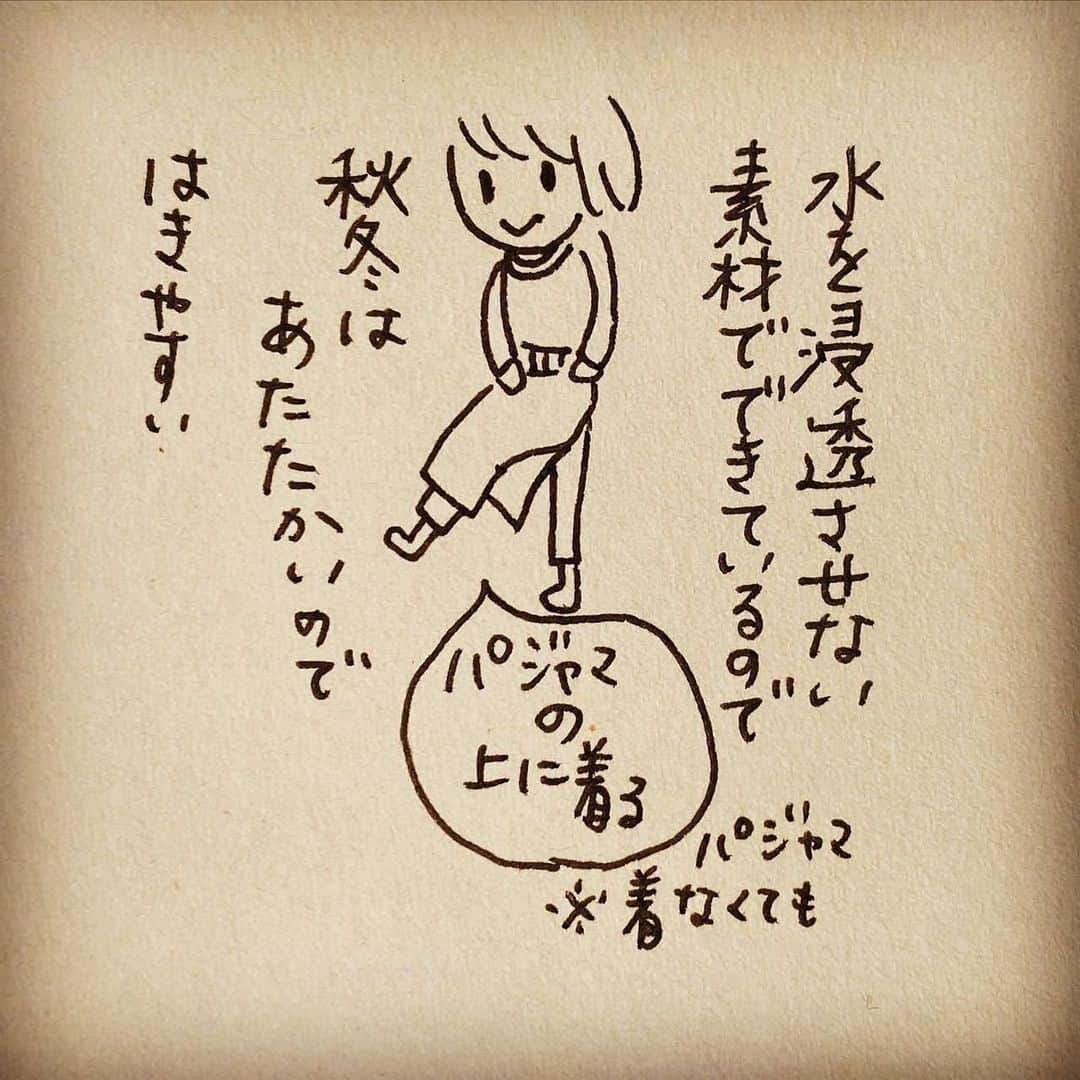 水を浸透させない
素材でできているので
秋冬は
あたたかいので
はきやすい
パジャマ
の
上に着る
パジャマ
※着なくても